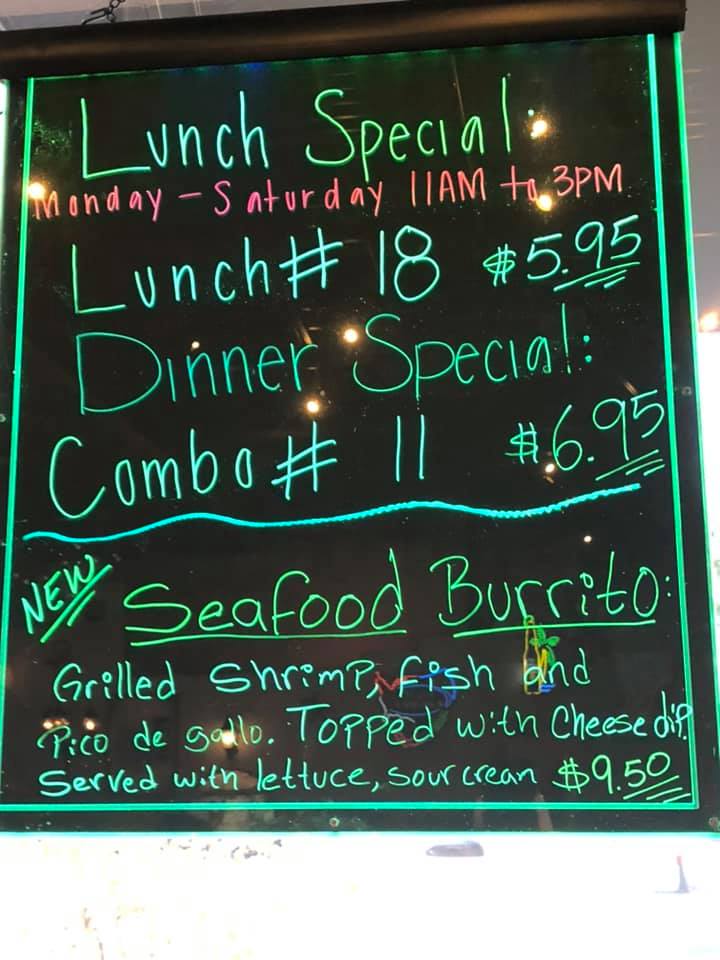 Lunch Special:
Monday - Saturday 11AM to 3PM
Lunch# 18 $5.95
Dinner Special:
Combo# 11 $6.95
NEW Seafood Burrito:
Grilled Shrimp, fish and
Pico de gallo. Topped with Cheese dip
Served with lettuce, sour crean $9.50